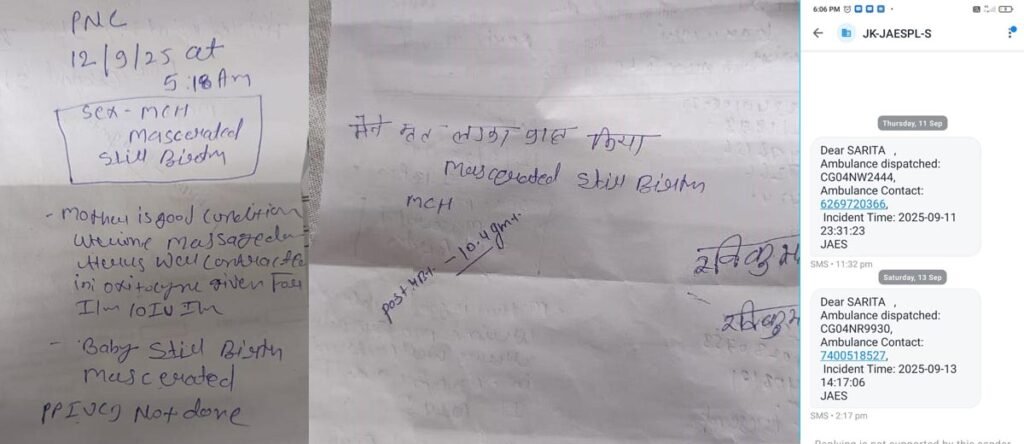 PNC
12/9/25 at
5:18 Am
Sex - MCH
Mascerated
Still Birth
- Mother is good Condition
uterine massaged
uterus well Contractle
inj oxitocyne given
I/m 10 IU I/m
- Baby Still Birth
Mascerated
PPIUCD Not done
मैने मृत लडका प्राप्त किया
Mascerated Still Birth
MCH
post. HB+. - 10.4 gm%.
6:06 PM
JK-JAESPL-S
Thursday, 11 Sep
Dear SARITA ,
Ambulance dispatched:
CG04NW2444,
Ambulance Contact:
6269720366,
Incident Time: 2025-09-11
23:31:23
JAES
SMS • 11:32 pm
Saturday, 13 Sep
Dear SARITA ,
Ambulance dispatched:
CG04NR9930,
Ambulance Contact:
7400518527,
Incident Time: 2025-09-13
14:17:06
JAES
SMS • 2:17 pm
Replying is not supported by this sender